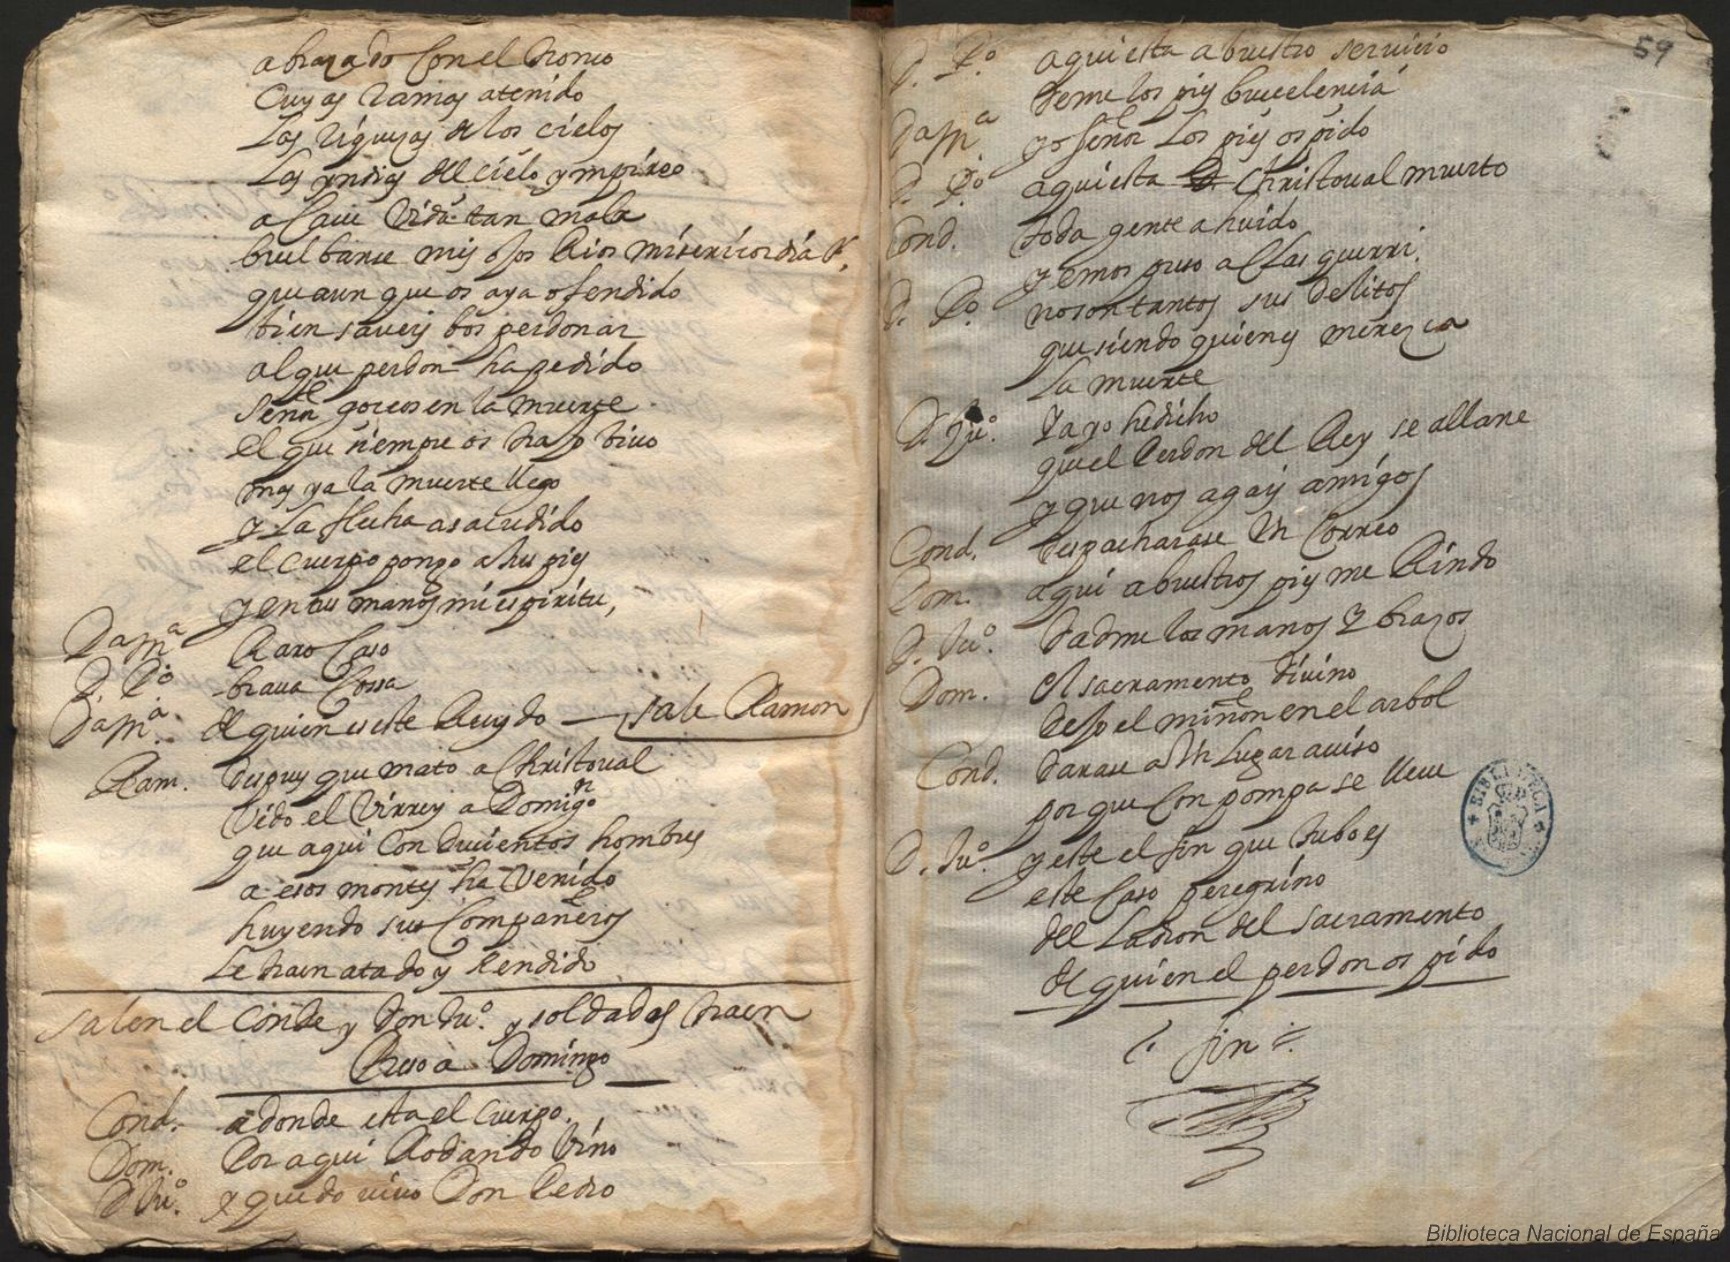 abraçado con el tronco
cuyas ramas a tenido
las riqueças de los cielos
las yndias del cielo ympireo
a laue vida tan mala
buelbanse mis ojos Rios misericordia
que aun que os aya ofendido
bien saueis bos perdonar
al que perdon ha pedido
señor goceos en la muerte
el que siempre os trajo bivo
mas ya la muerte llego
y la flecha a sacudido
el cuerpo pongo a tus pies
y en tus manos mi espiritu,
Dama Raro Caso
D. Po braua Cossa
Dama. de quien es este Ruydo — sale Ramon
Ram. despues que mato a Christoual
vido el Virrey a Domigo
que aqui con Ducientos hombres
a esos montes ha Venido
huyendo sus Compañeros
le traen atado y Rendido
salen el Conde y Don Juo. y soldados traen
Preso a Domingo
Cond. a donde esta el cuerpo.
Dom. Por aqui Rodando Vino
D Juo. y quedo viuo Don Pedro
59
D. Po. aqui esta a buestro seruicio
deme los pies buecelencia
Dama yo señor los pies os pido
D. Po aqui esta D. Christoual muerto
Cond. toda gente a huido
y emos preso a Clas querri.
D. Po. no son tantos sus delitos
que siendo quien es merezca
la muerte
D. Juo. Ya yo he dicho
que el Perdon del Rey se allane
y que nos agais amigos
Cond. despacharase Un Correo
Dom. aqui a buestros pies me Rindo
D. Juo. dadme los manos y braços
Dom. el sacramento divino
dejo el miñon en el arbol
Cond. darase a Un Lugar auiso
por que con pompa se lleue
D. Juo. y este el fin que tubo es
este Caso peregrino
del Ladron del sacramento
de quien el perdon os pido
fin
BIBLIOTECA
Biblioteca Nacional de España